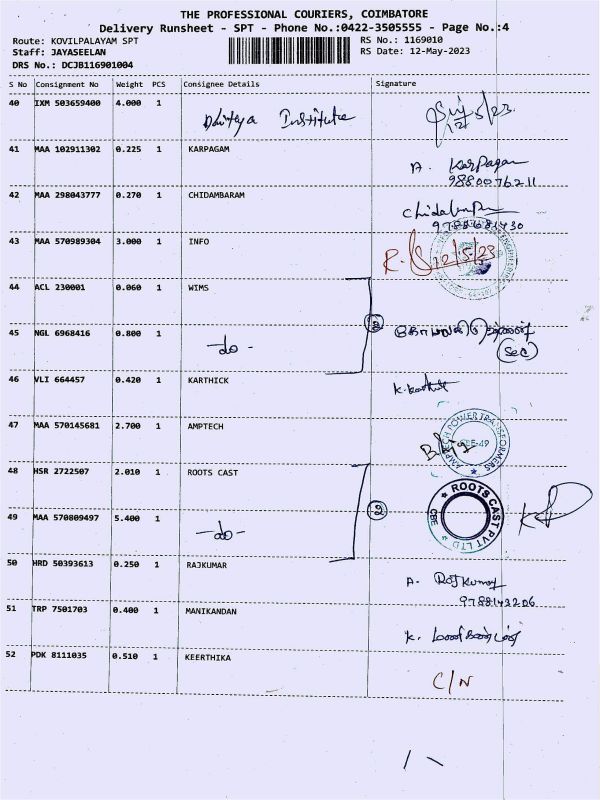 THE PROFESSIONAL COURIERS, COIMBATORE
Delivery Runsheet - SPT - Phone No.:0422-3505555 - Page No.:4
Route: KOVILPALAYAM SPT RS No.: 1169010
Staff: JAYASEELAN RS Date: 12-May-2023
DRS No.: DCJB116901004
S No Consignment No Weight PCS Consignee Details Signature
40 IXM 503659400 4.000 1 Institute 12/5/23
41 MAA 102911302 0.225 1 KARPAGAM A. Karpagam
9880076211
42 MAA 298043777 0.270 1 CHIDAMBARAM
43 MAA 570989304 3.000 1 INFO R. 12/5/23
44 ACL 230001 0.060 1 WIMS
45 NGL 6968416 0.800 1 -do- (2)
(Sec)
46 VLI 664457 0.420 1 KARTHICK
47 MAA 570145681 2.700 1 AMPTECH AMPTECH POWER TRANSFORMERS CBE-49
48 HSR 2722507 2.010 1 ROOTS CAST ROOTS CAST PVT LTD CBE
49 MAA 570809497 5.400 1 -do- (2)
50 HRD 50393613 0.250 1 RAJKUMAR A. Rajkumar
9788143206
51 TRP 7501703 0.400 1 MANIKANDAN K. மணிகண்டன்
52 PDK 8111035 0.510 1 KEERTHIKA C/N